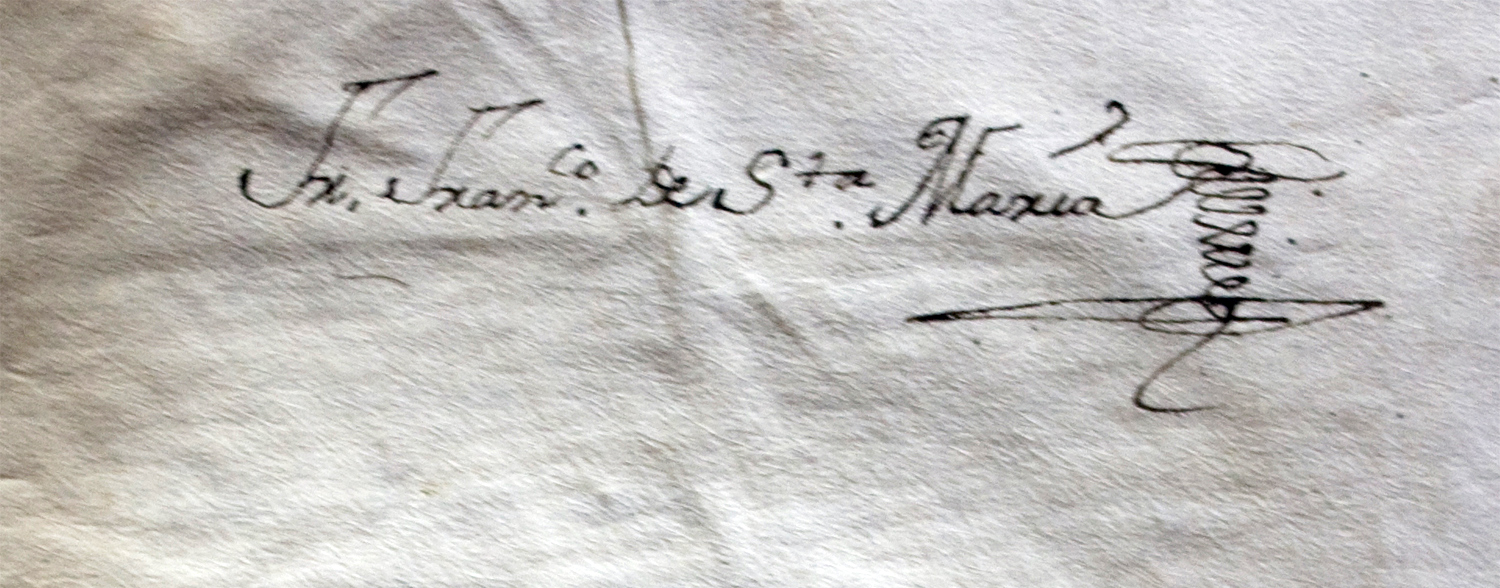 Fr. Fran.co de S.ta Maria